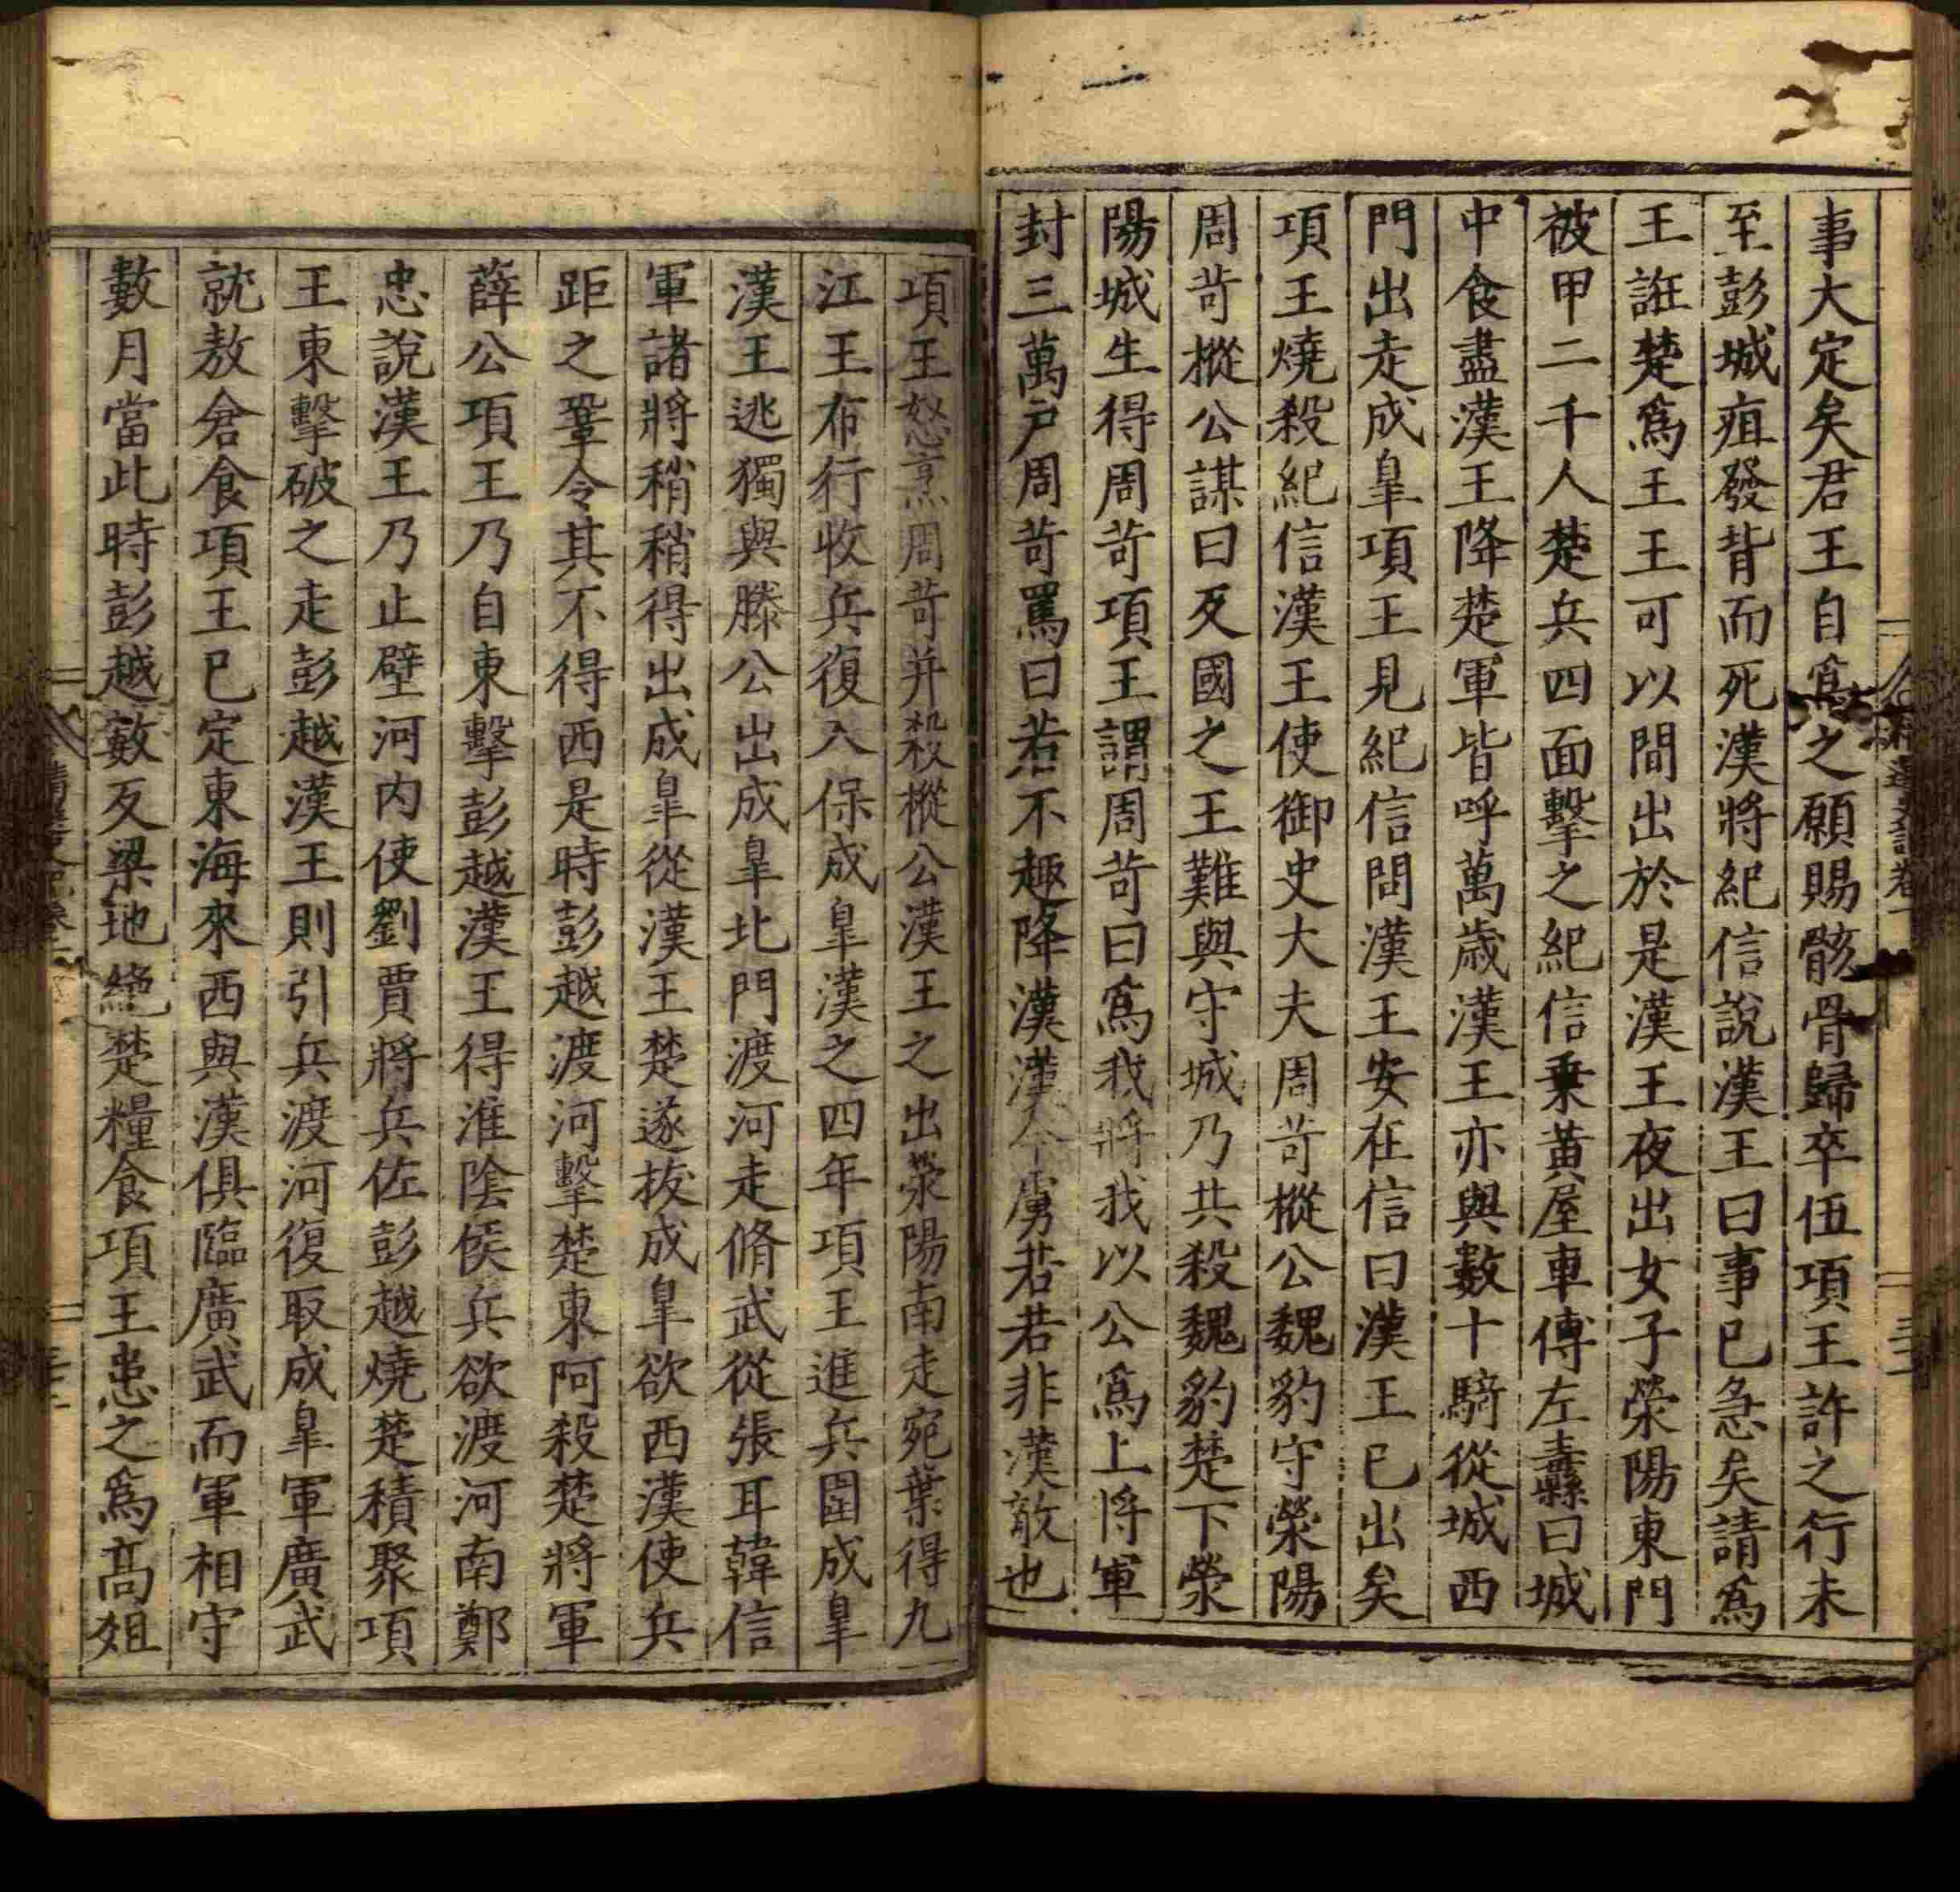 事大定矣君王自爲之願賜骸骨歸卒伍項王許之行未
至彭城疽發背而死漢將紀信說漢王曰事已急矣請爲
王誑楚爲王王可以間出於是漢王夜出女子滎陽東門
被甲二千人楚兵四面擊之紀信乗黃屋車傅左纛曰城
中食盡漢王降楚軍皆呼萬歲漢王亦與數十騎從城西
門出走成皐項王見紀信問漢王安在信曰漢王已出矣
項王燒殺紀信漢王使御史大夫周苛樅公魏豹守滎陽
周苛樅公謀曰反國之王難與守城乃共殺魏豹楚下滎
陽城生得周苛項王謂周苛曰爲我將我以公爲上將軍
封三萬户周苛罵曰若不趣降漢漢今虜若若非漢敵也
項王怒烹周苛并殺樅公漢王之出滎陽南走宛葉得九
江王布行收兵復入保成皐漢之四年項王進兵圍成皐
漢王逃獨與滕公出成皐北門渡河走脩武從張耳韓信
軍諸將稍稍得出成皐從漢王楚遂拔成皐欲西漢使兵
距之鞏令其不得西是時彭越渡河擊楚東阿殺楚將軍
薛公項王乃自東擊彭越漢王得淮陰侯兵欲渡河南鄭
忠說漢王乃止壁河内使劉賈將兵佐彭越燒楚積聚項
王東擊破之走彭越漢王則引兵渡河復取成皐軍廣武
就敖倉食項王已定東海來西與漢俱臨廣武而軍相守
數月當此時彭越數反梁地絶楚糧食項王患之爲髙俎